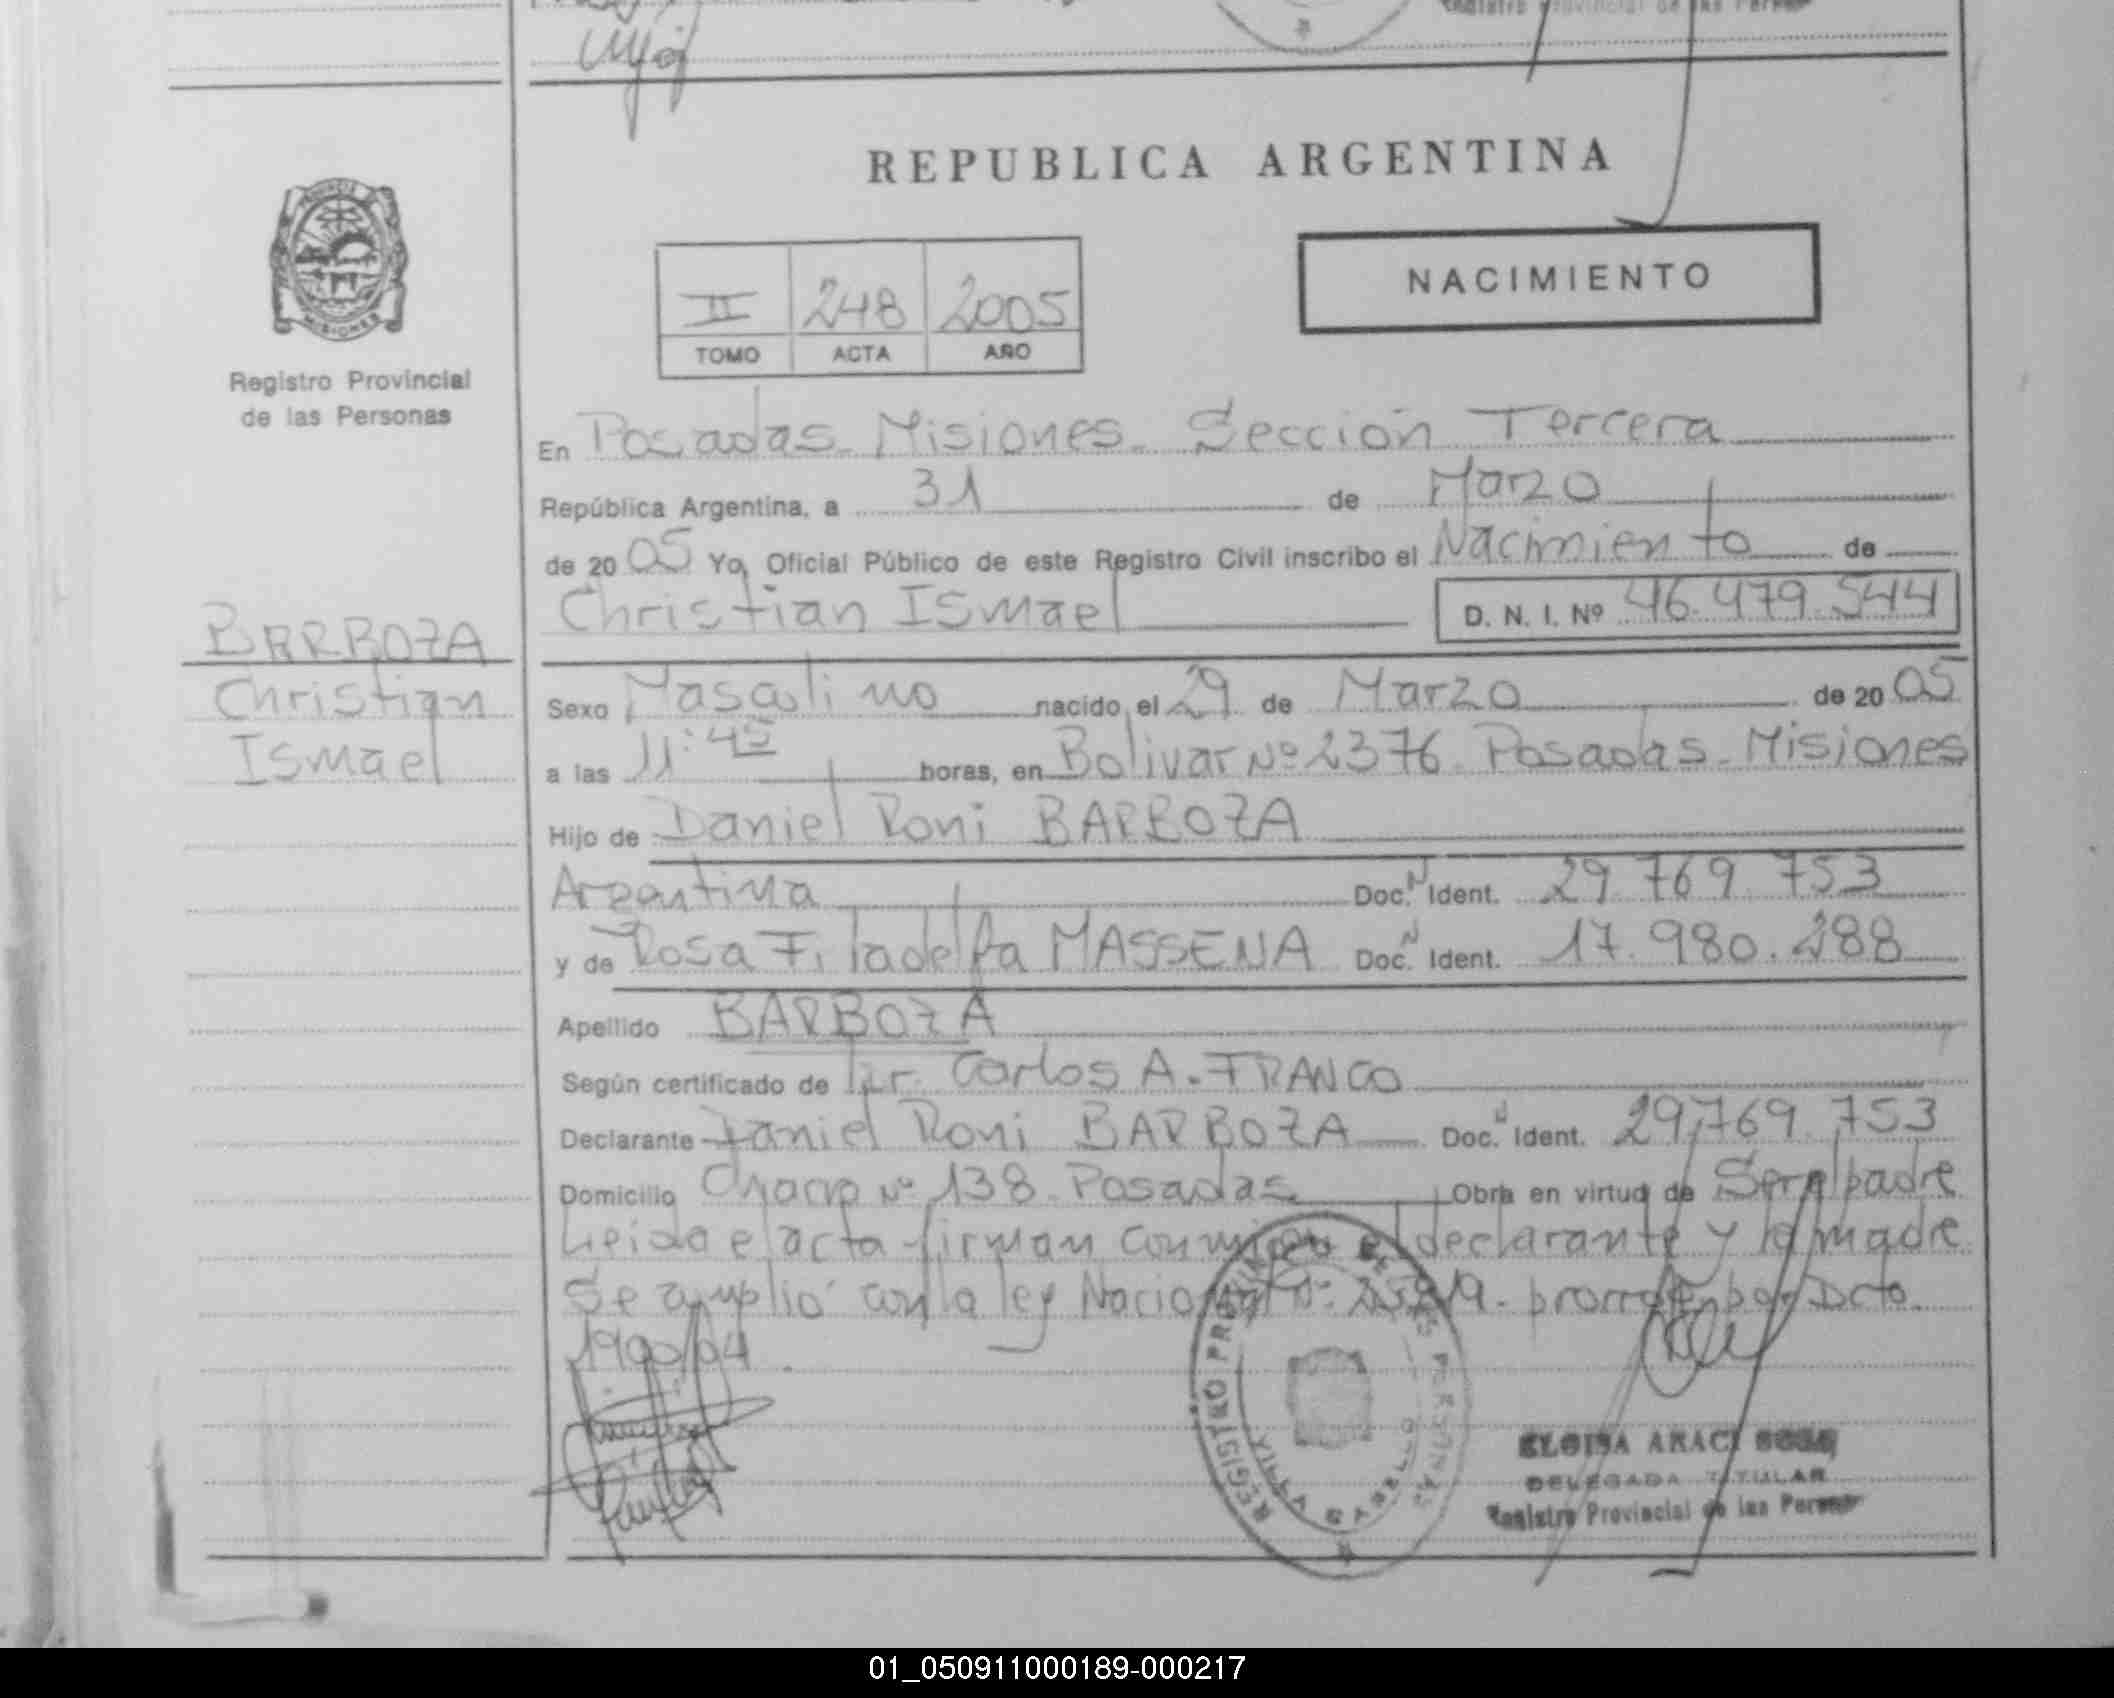 REPUBLICA ARGENTINA
NACIMIENTO
II 248 2005
TOMO ACTA AÑO
PROVINCIA
MISIONES
Registro Provincial
de las Personas
BARBOZA
Christian
Ismael
En Posadas - Misiones - Sección Tercera
República Argentina, a 31 de Marzo
de 2005 Yo, Oficial Público de este Registro Civil inscribo el Nacimiento de
Christian Ismael D. N. I. Nº 46.479.544
Sexo Masculino nacido el 29 de Marzo de 2005
a las 11:45 horas, en Bolivar Nº 2376 Posadas - Misiones
Hijo de Daniel Roni BARBOZA
Argentina Doc. N Ident. 29.769.753
y de Rosa Filadelfa MASSENA Doc. N Ident. 17.980.288
Apellido BARBOZA
Según certificado de Dr. Carlos A. FRANCO
Declarante Daniel Roni BARBOZA Doc. N Ident. 29.769.753
Domicilio Nº 138 Posadas Obra en virtud de Ser el padre
Leida el acta firman conmigo el declarante y la madre
Se amplió con la ley Nacional Nº por Dcto.
1900/04
REGISTRO PROVINCIAL DE LAS PERSONAS
VILLA CABELLO
ELOISA ARACI SOSA
DELEGADA TITULAR
Registro Provincial de las Person
01_050911000189-000217